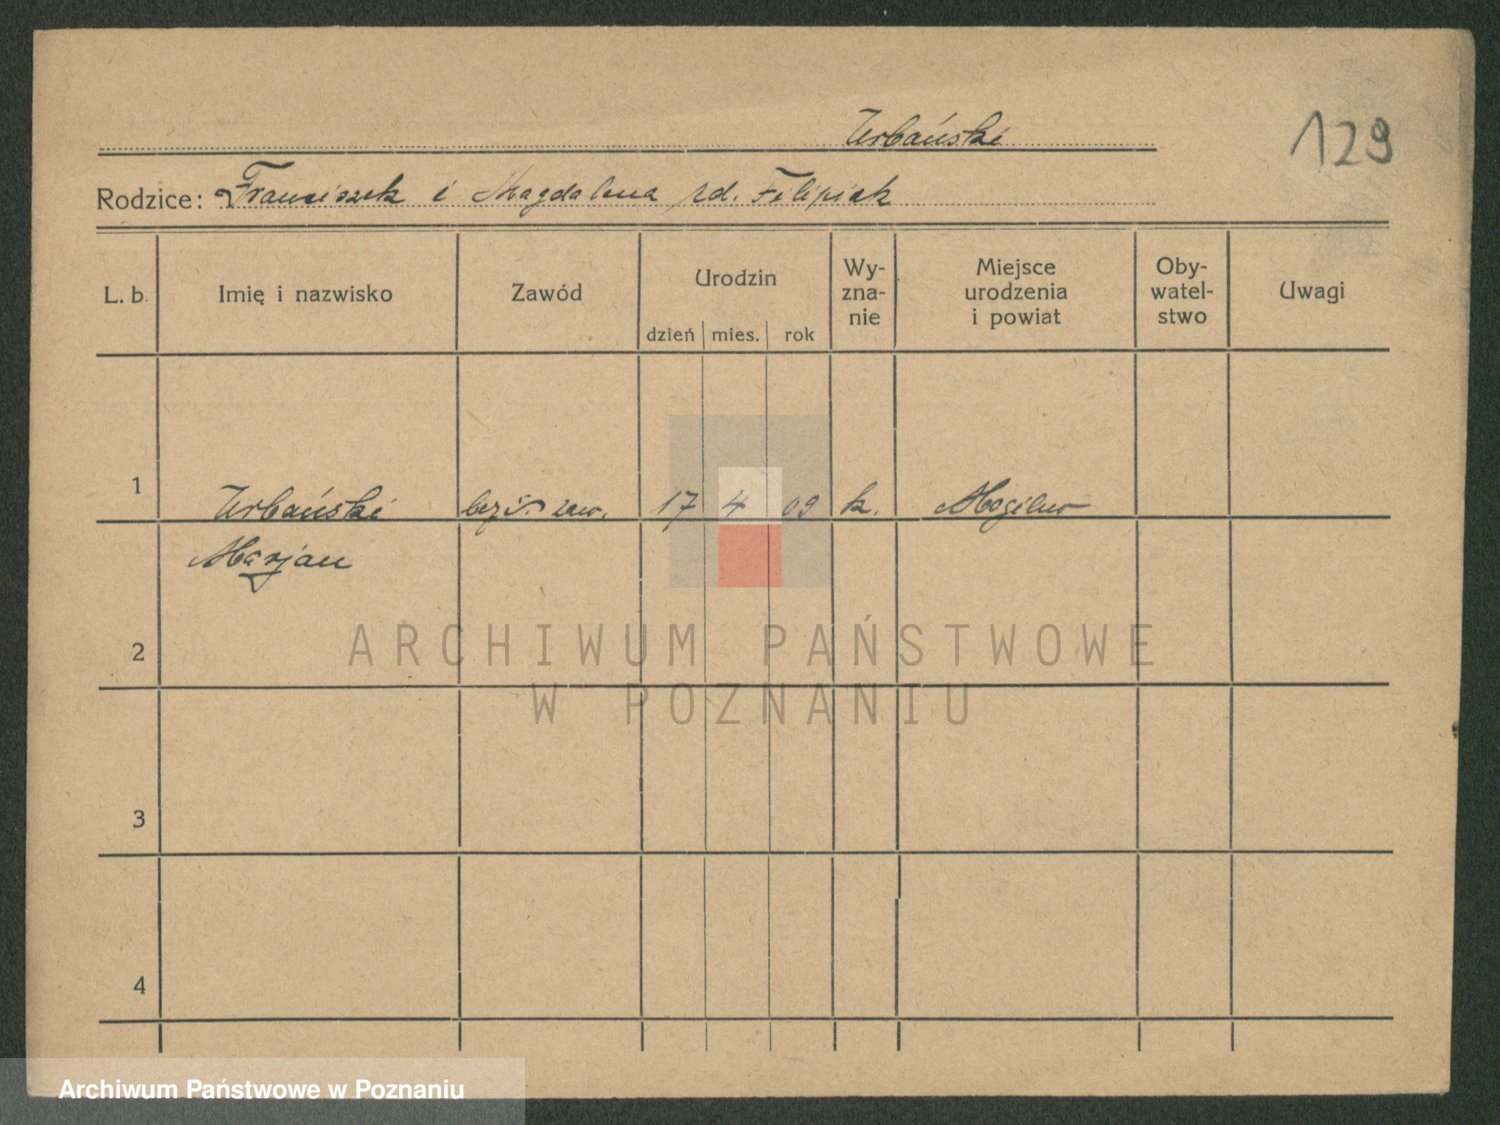 Urbański
129
Rodzice: Franciszek i Magdalena rd. Filipiak
L. b. Imię i nazwisko Zawód Urodzin Wy-zna-nie Miejsce urodzenia i powiat Oby-watel-stwo Uwagi
dzień mies. rok
1 Urbański zaw. 17 4 09 k. Mogilno
Marjan
2
ARCHIWUM PAŃSTWOWE
W POZNANIU
3
4
Archiwum Państwowe w Poznaniu